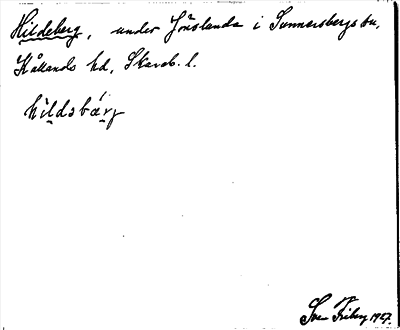 Hildeberg, under Jönslunda i Sunnersbergs sn,
Kållands hd, Skarab. l.
hìldsbár̨j
Sven Friberg 1927.